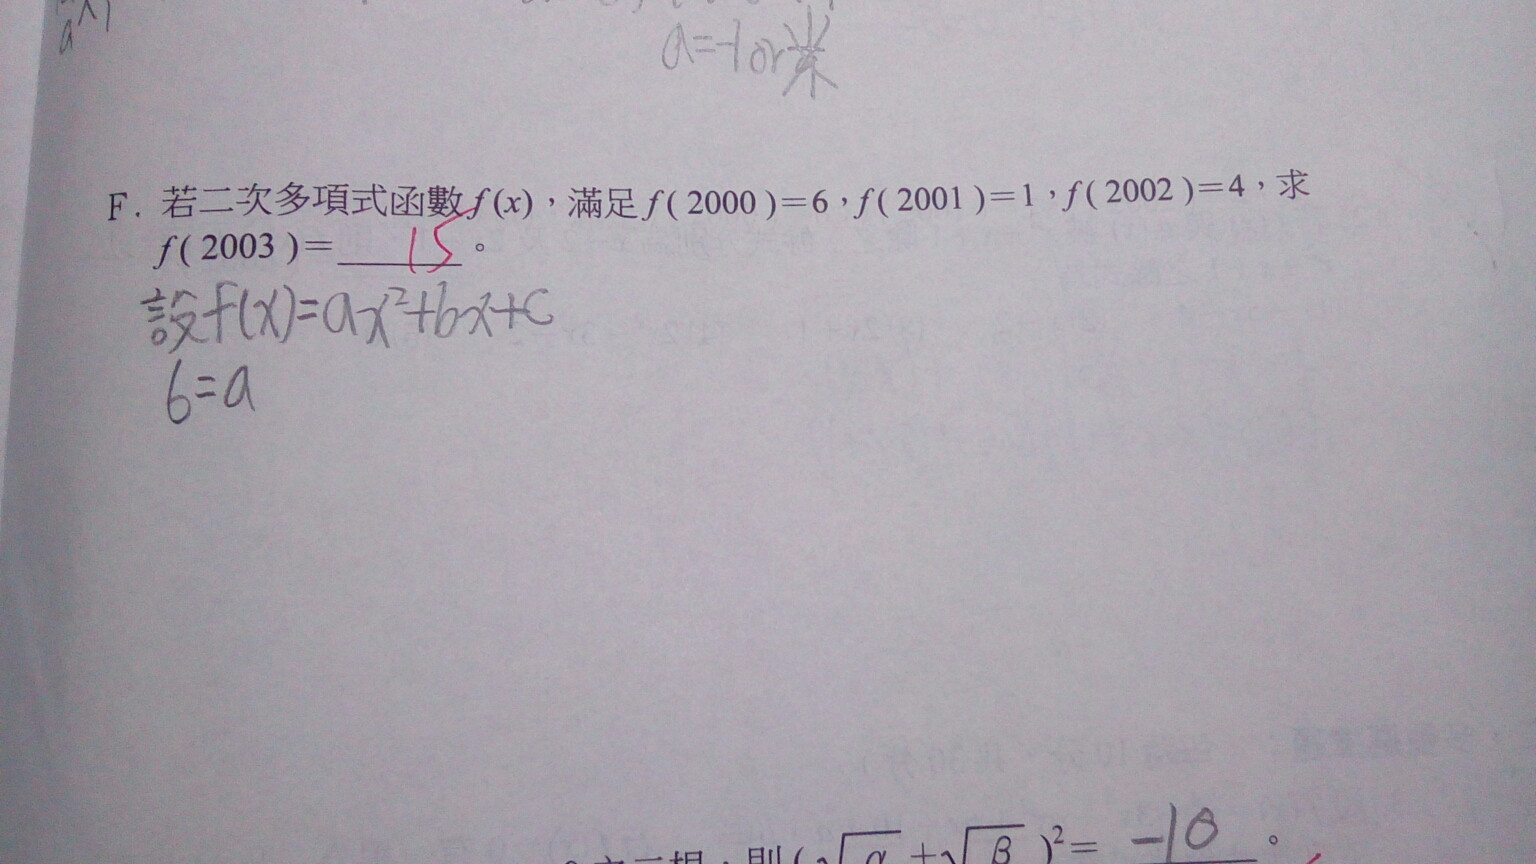 a=-1or
F. 若二次多項式函數f(x)，滿足f(2000)=6，f(2001)=1，f(2002)=4，求
f(2003)=15。
設f(x)=ax²+bx+c
6=a
則(√α+√β)²=-10。